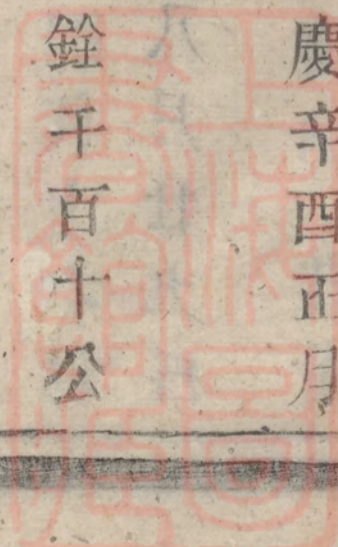 慶辛酉正月
銓千百十公